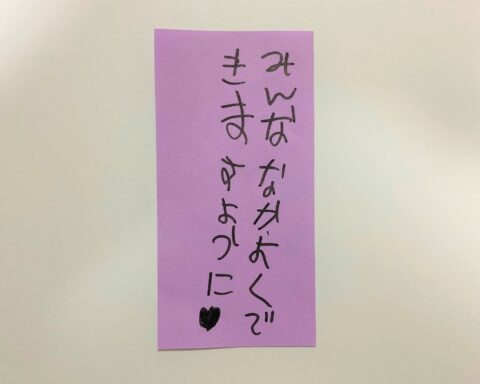 みんな なかよくで
きます すように♥